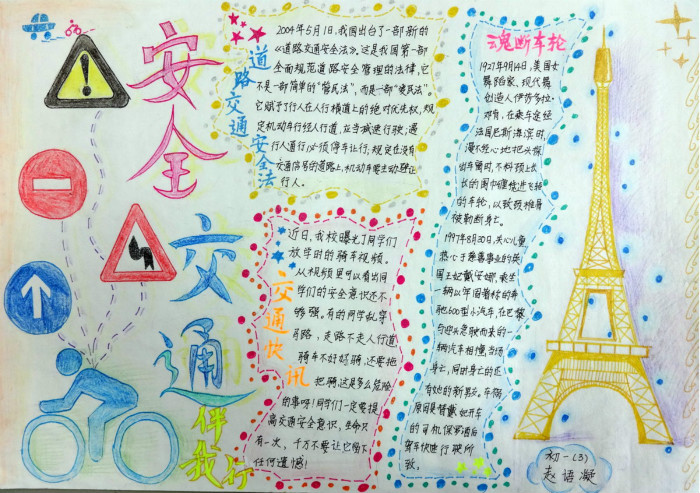 安全
交通
伴我行
道路交通安全法
2004年5月1日,我国出台了一部新的
《道路交通安全法》。这是我国第一部
全面规范道路安全管理的法律,它
不是一部简单的"管民法",而是一部"爱民法"。
它赋予了行人在人行横道上的绝对优先权,规
定机动车行经人行道,应当减速行驶,遇
行人通行必须停车让行;规定在没有
交通信号的道路上,机动车要主动避让
行人。
交通快讯
近日,我校曝光了同学们
放学时的骑车视频。
从视频里可以看出同
学们的安全意识还不
够强。有的同学乱穿
马路,走路不走人行道
骑车不好好骑,还要拖
把骑,这是多么危险
的事呀!同学们一定要提
高交通安全意识,生命只
有一次,千万不要让它留下
任何遗憾!
魂断车轮
1927年9月14日,美国女
舞蹈家、现代舞
创造人伊莎多拉·
邓肯,在乘车途经
法国尼斯海滨时,
漫不经心地把头探
出车窗时,不料颈上长
长的围巾缠绕进飞转
的车轮,以致颈椎骨
被勒断身亡。
1997年8月30日,关心儿童
热心于慈善事业的英
国王妃戴安娜,乘坐
一辆以年固着称的奔
驰600型小汽车,在巴黎
与迎头急驶而来的一
辆汽车相撞,当场
身亡,同时身亡的还
有她的新男友。车祸
原因是替戴妃开车
的司机保罗酒后
驾车快速行驶所
致。
初一(3)
赵语凝